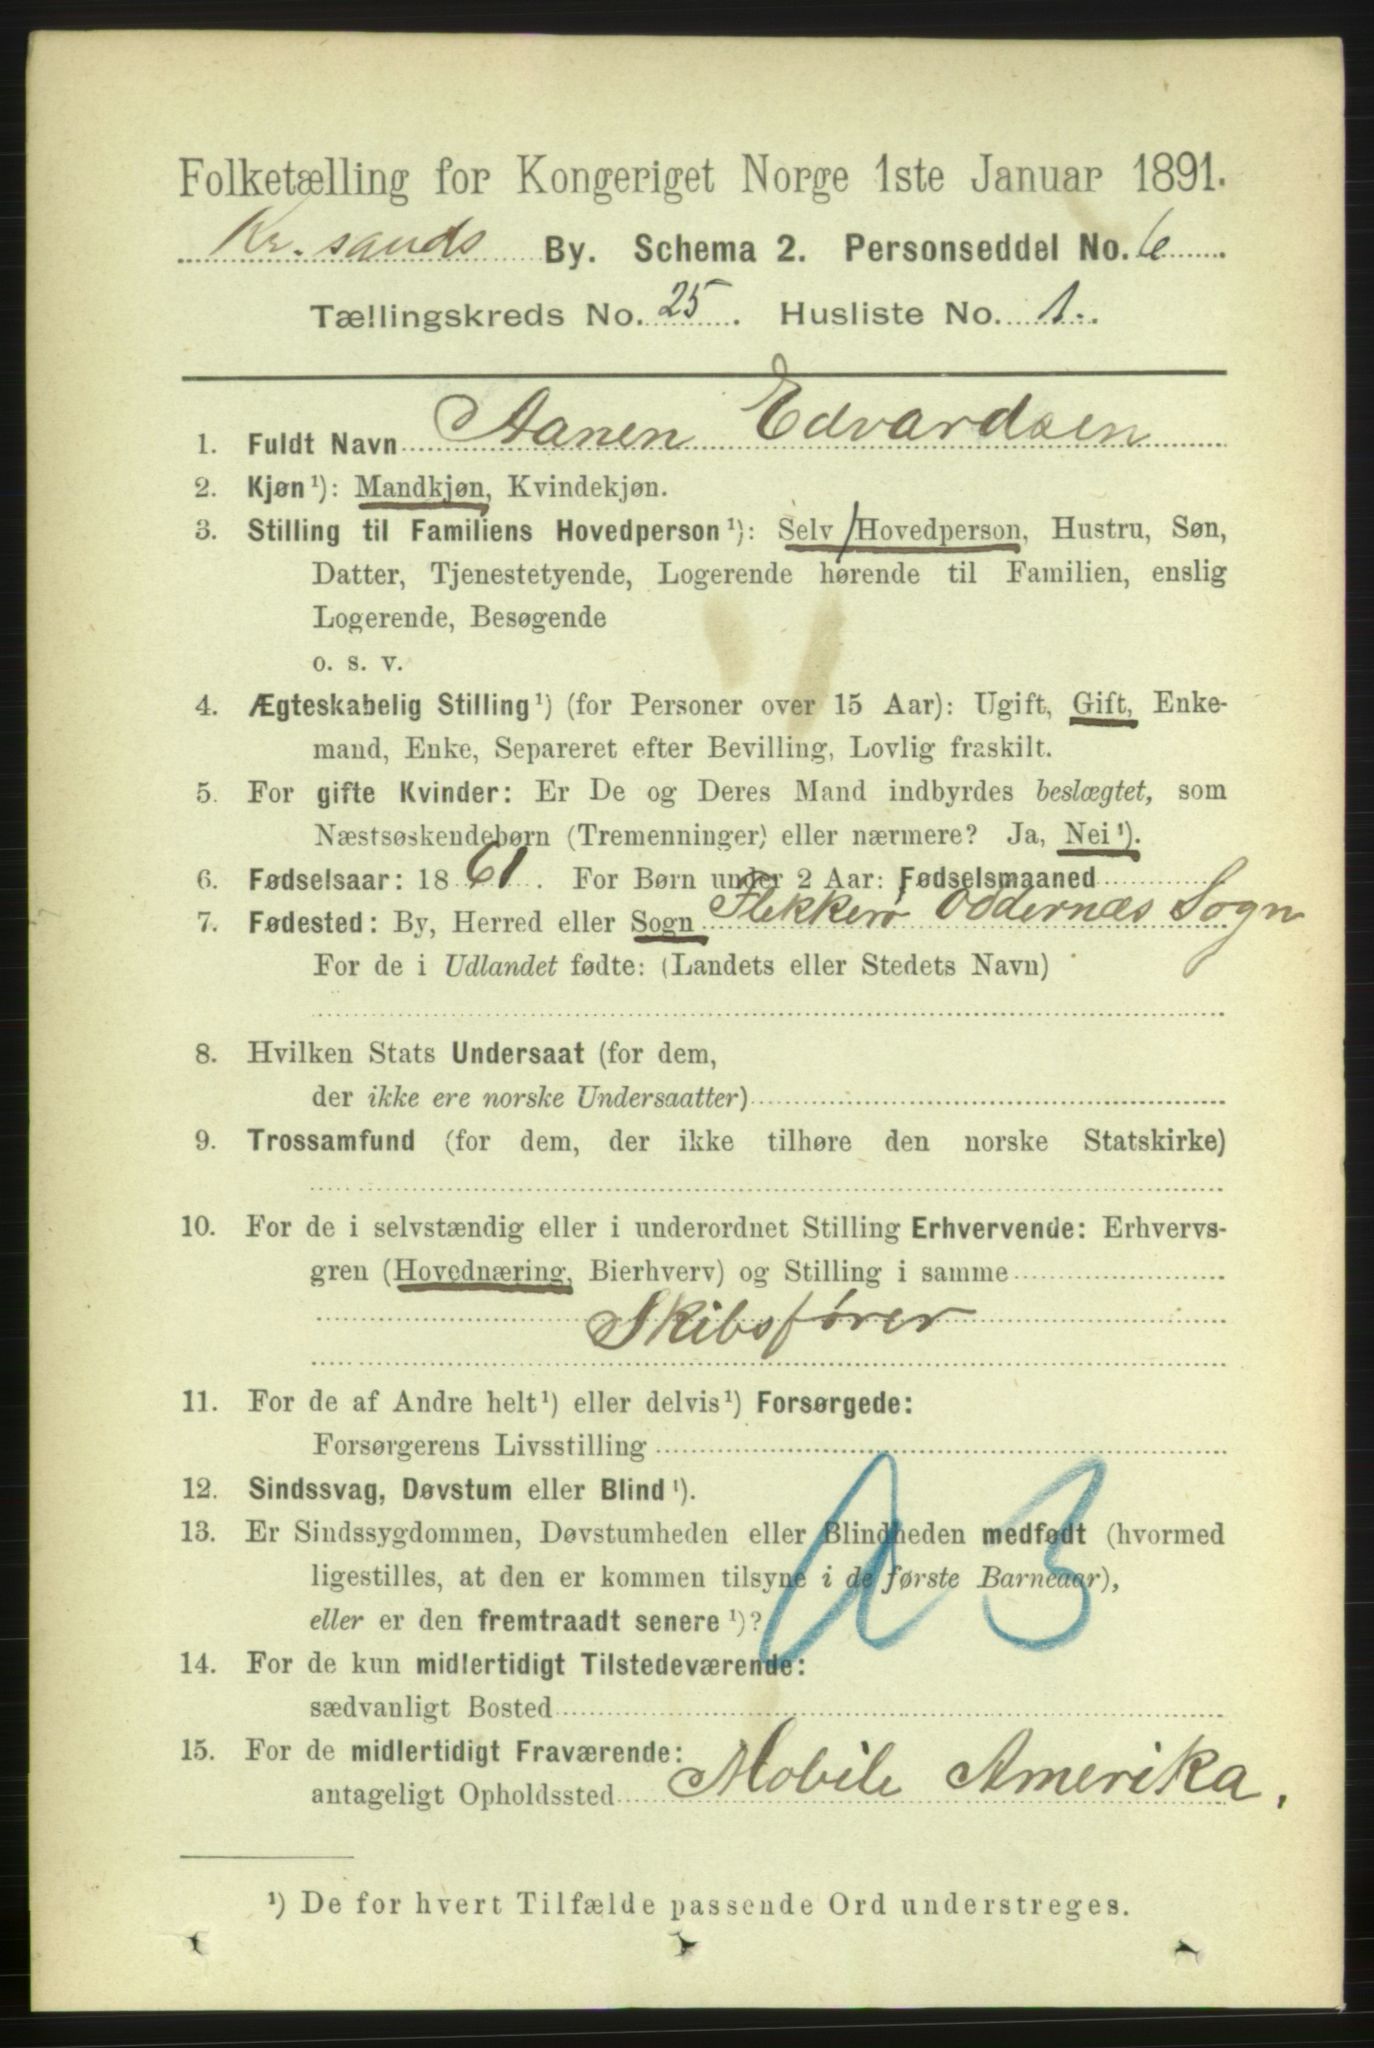 Folketælling for Kongeriget Norge 1ste Januar 1891.
Kr.sands By. Schema 2. Personseddel No. 6
Tællingskreds No. 25. Husliste No. 1.
1. Fuldt Navn Aanen Edvardsen
2. Kjøn¹): Mandkjøn, Kvindekjøn.
3. Stilling til Familiens Hovedperson¹): Selv / Hovedperson, Hustru, Søn,
Datter, Tjenestetyende, Logerende hørende til Familien, enslig
Logerende, Besøgende
o. s. v.
4. Ægteskabelig Stilling¹) (for Personer over 15 Aar): Ugift, Gift, Enke-
mand, Enke, Separeret efter Bevilling, Lovlig fraskilt.
5. For gifte Kvinder: Er De og Deres Mand indbyrdes beslægtet, som
Næstsøskendebørn (Tremenninger) eller nærmere? Ja, Nei¹).
6. Fødselsaar: 1861. For Børn under 2 Aar: Fødselsmaaned
7. Fødested: By, Herred eller Sogn Flekkerø Oddernæs Sogn
For de i Udlandet fødte: (Landets eller Stedets Navn)
8. Hvilken Stats Undersaat (for dem,
der ikke ere norske Undersaatter)
9. Trossamfund (for dem, der ikke tilhøre den norske Statskirke)
10. For de i selvstændig eller i underordnet Stilling Erhvervende: Erhvervs-
gren (Hovednæring, Bierhverv) og Stilling i samme
Skibsfører
11. For de af Andre helt¹) eller delvis¹) Forsørgede:
Forsørgerens Livsstilling
12. Sindssvag, Døvstum eller Blind¹).
13. Er Sindssygdommen, Døvstumheden eller Blindheden medfødt (hvormed
ligestilles, at den er kommen tilsyne i de første Barneaar),
eller er den fremtraadt senere¹)?
14. For de kun midlertidigt Tilstedeværende:
sædvanligt Bosted
15. For de midlertidigt Fraværende:
antageligt Opholdssted Mobile Amerika.
¹) De for hvert Tilfælde passende Ord understreges.